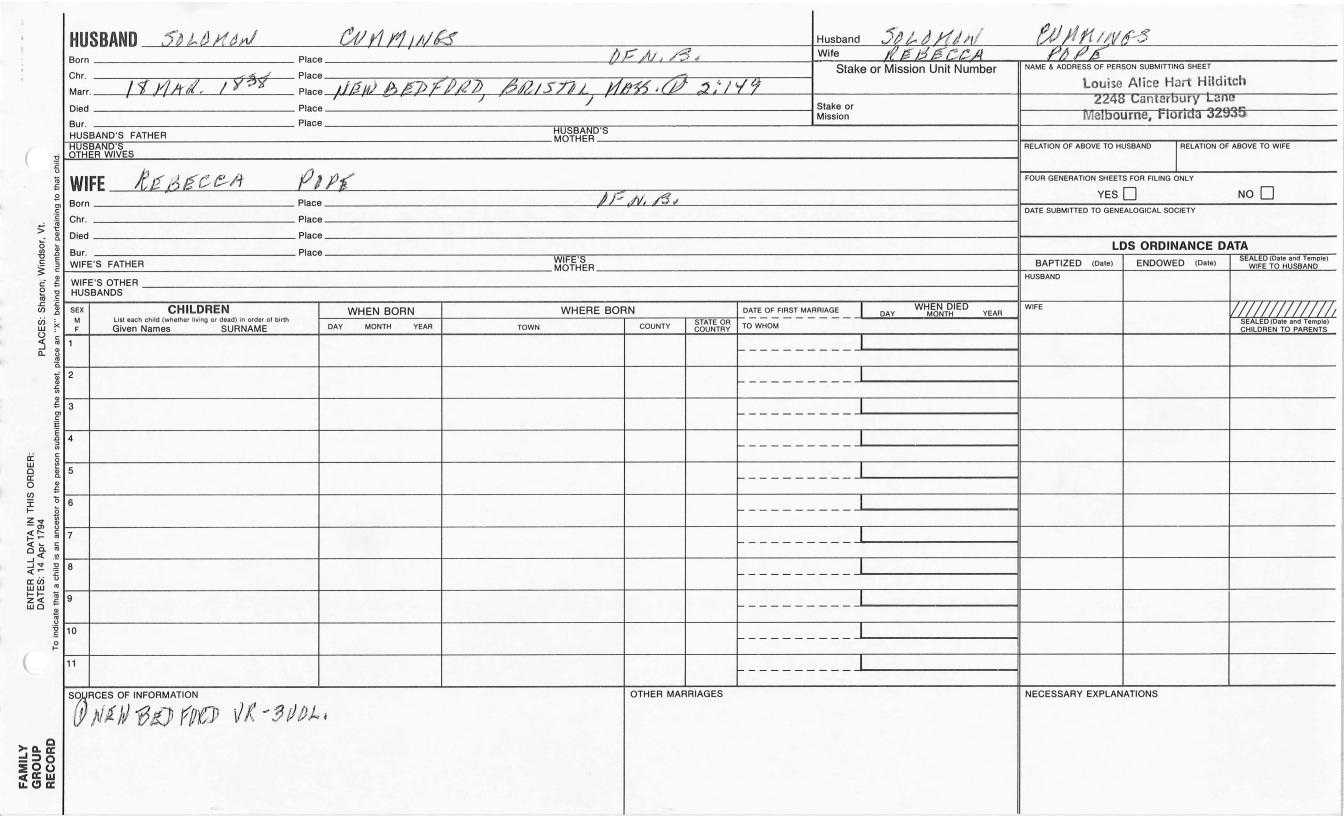 HUSBAND SOLOMON CUMMINGS
Born Place OF N.B.
Chr. Place
Marr. 18 MAR. 1838 Place NEW BEDFORD, BRISTOL, MASS. ① 2:149
Died Place
Bur. Place
HUSBAND'S FATHER HUSBAND'S MOTHER
HUSBAND'S OTHER WIVES
Husband SOLOMON CUMMINGS
Wife REBECCA POPE
Stake or Mission Unit Number
Stake or Mission
NAME & ADDRESS OF PERSON SUBMITTING SHEET
Louise Alice Hart Hilditch
2248 Canterbury Lane
Melbourne, Florida 32935
RELATION OF ABOVE TO HUSBAND RELATION OF ABOVE TO WIFE
FOUR GENERATION SHEETS FOR FILING ONLY
YES NO
DATE SUBMITTED TO GENEALOGICAL SOCIETY
WIFE REBECCA POPE
Born Place OF N.B.
Chr. Place
Died Place
Bur. Place
WIFE'S FATHER WIFE'S MOTHER
WIFE'S OTHER HUSBANDS
LDS ORDINANCE DATA
BAPTIZED (Date) ENDOWED (Date) SEALED (Date and Temple) WIFE TO HUSBAND
HUSBAND
WIFE
SEALED (Date and Temple) CHILDREN TO PARENTS
SEX M F
CHILDREN
List each child (whether living or dead) in order of birth
Given Names SURNAME
WHEN BORN
DAY MONTH YEAR
WHERE BORN
TOWN COUNTY STATE OR COUNTRY
DATE OF FIRST MARRIAGE
TO WHOM
WHEN DIED
DAY MONTH YEAR
1
2
3
4
5
6
7
8
9
10
11
SOURCES OF INFORMATION
① NEW BEDFORD VR-3VOL.
OTHER MARRIAGES
NECESSARY EXPLANATIONS
FAMILY GROUP RECORD
ENTER ALL DATA IN THIS ORDER:
DATES: 14 Apr 1794 PLACES: Sharon, Windsor, Vt.
To indicate that a child is an ancestor of the person submitting the sheet, place an "X" behind the number pertaining to that child.